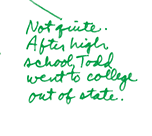 Not quite.
After high
school, Todd
went to college
out of state.